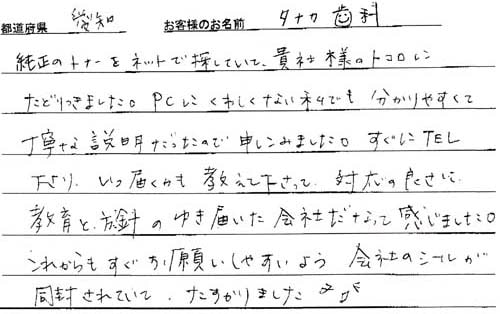 都道府県 愛知 お客様のお名前 タナカ歯科
純正のトナーをネットで探していて、貴社様のトコロに
たどりつきました。PCにくわしくない私でも分かりやすくて
丁寧な説明だったので申しこみました。すぐにTEL
下さり、いつ届くかも教えて下さって、対応の良さに、
教育と、方針のゆき届いた会社だなって感じました。
これからもすぐお願いしやすいよう会社のシールが
同封されていて、たすかりました